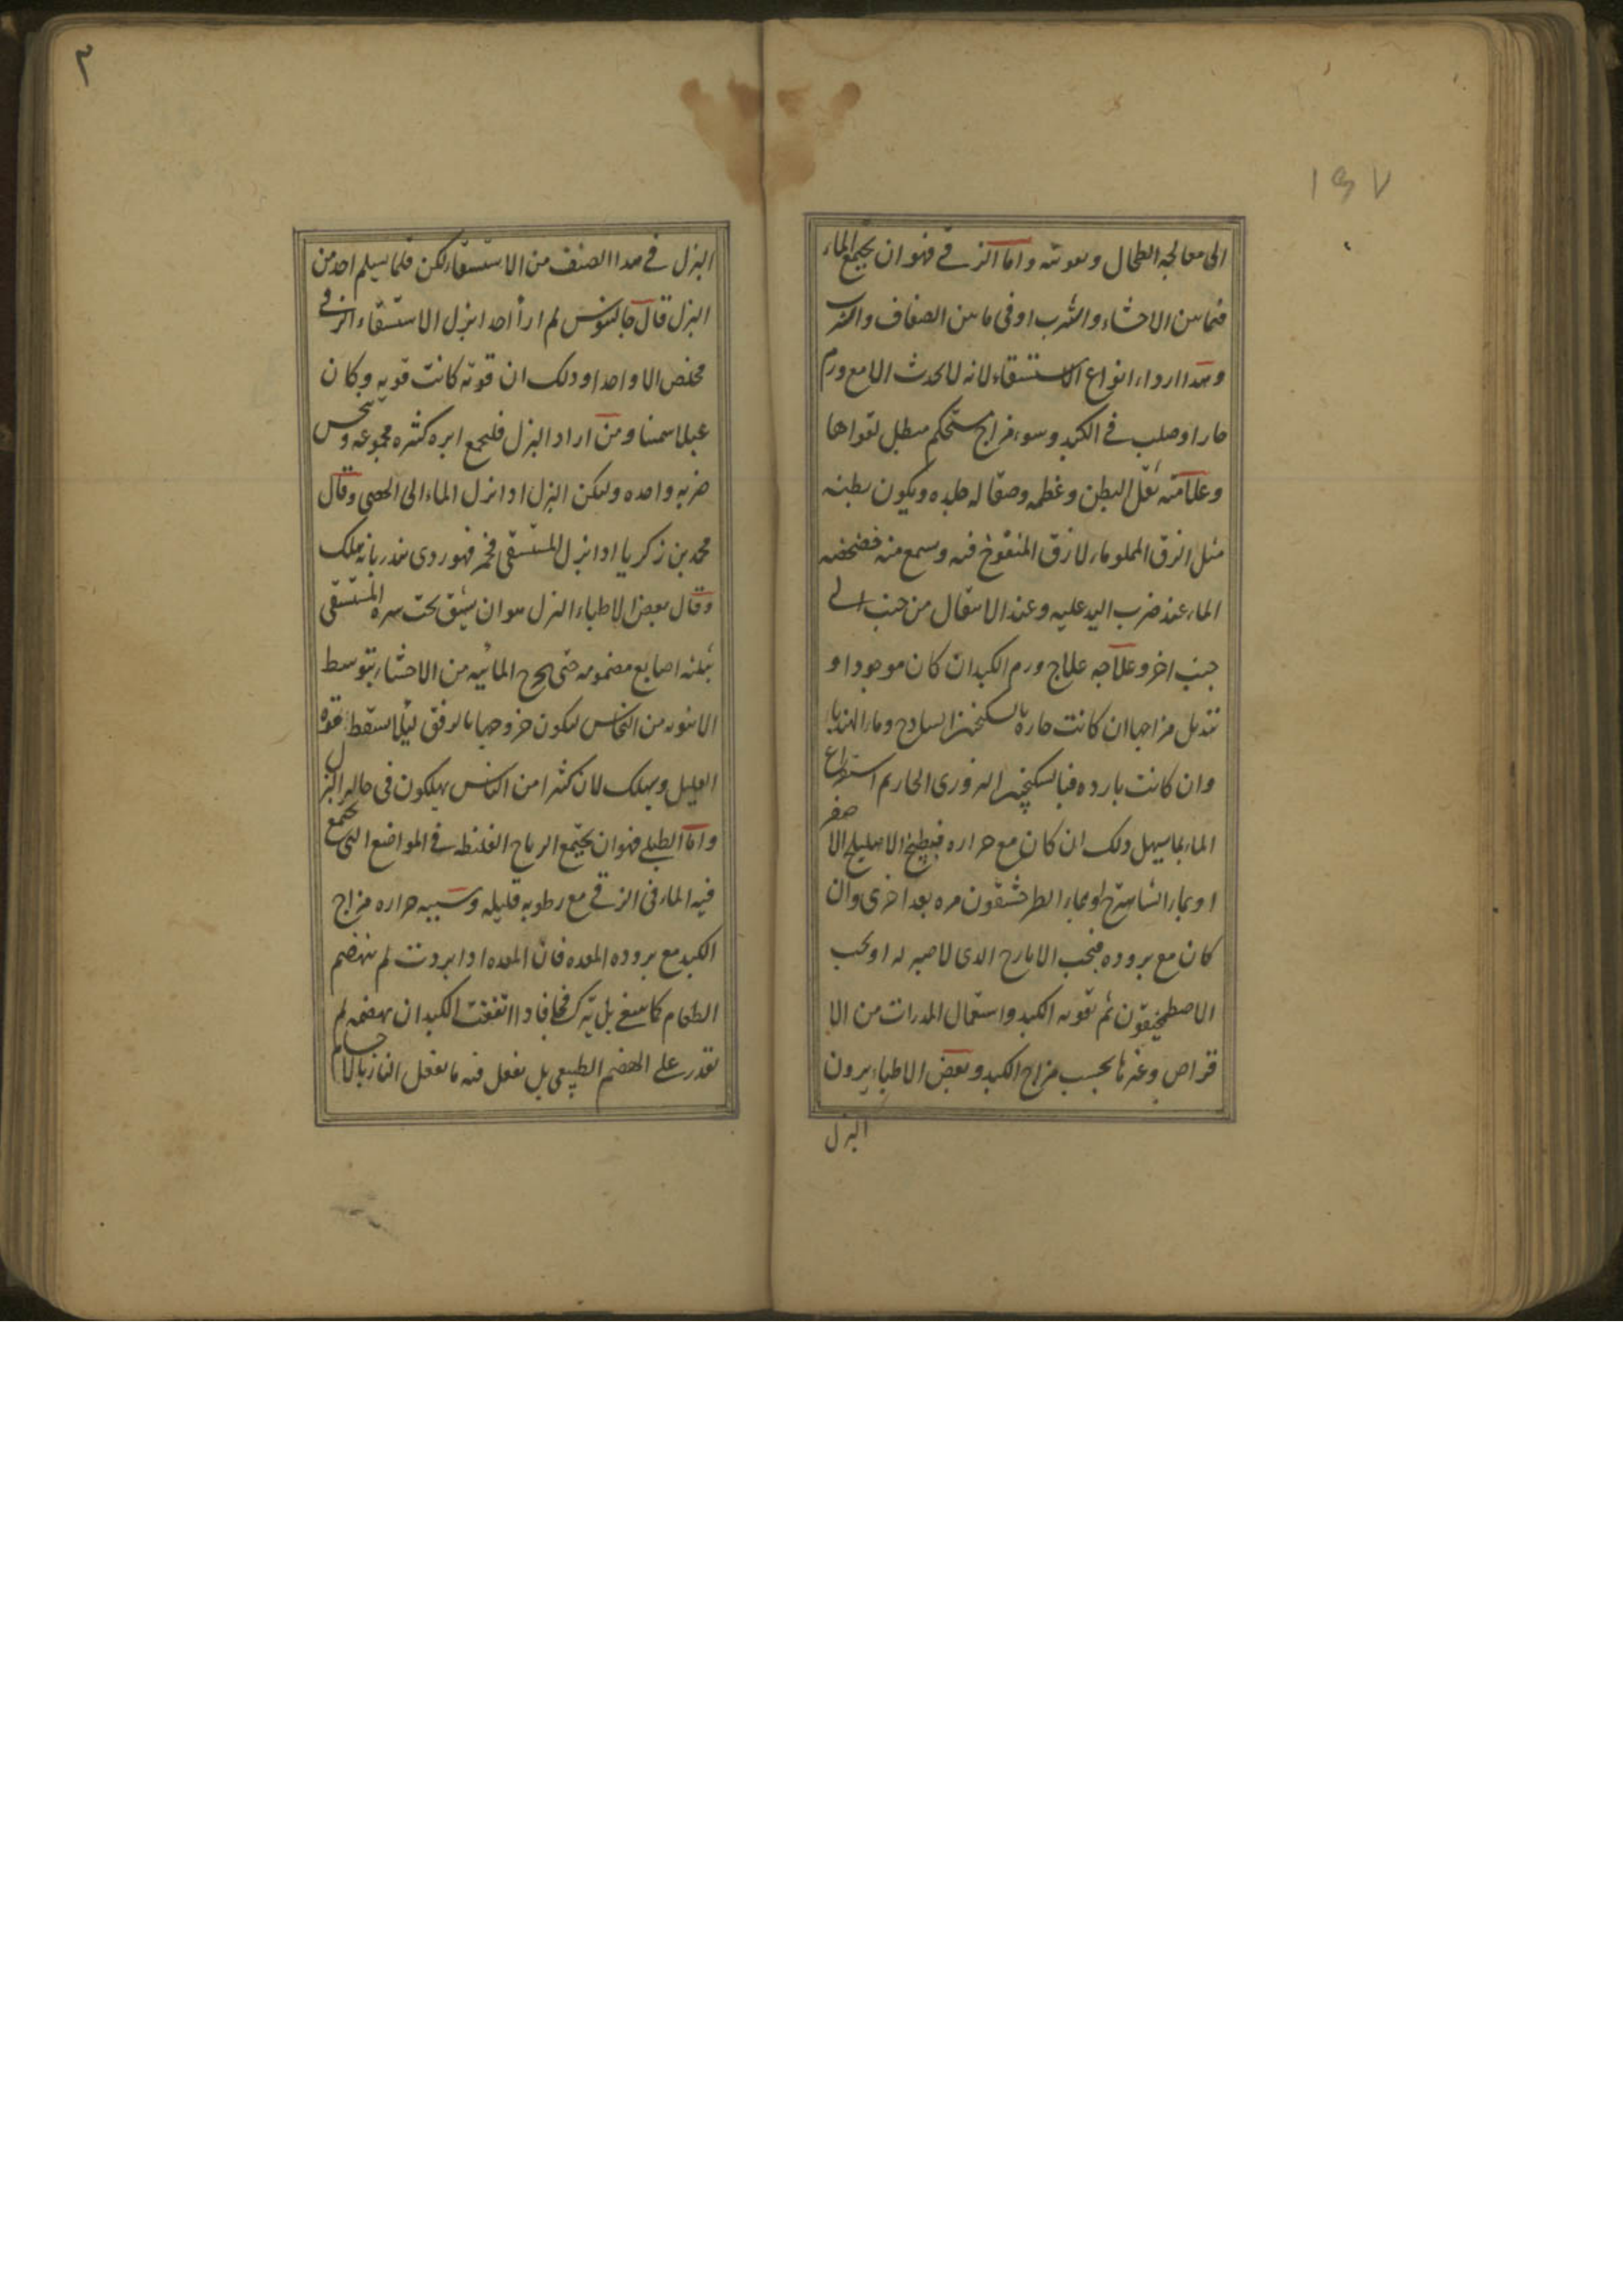 ١٥٧
الى معالجة الطحال وتقويته واما الزقى فهو ان يجتمع الماء
فيما بين الاحشاء والثرب او فى ما بين الصفاق والثرب
وهذا اردا انواع الاستسقاء لانه لا يحدث الا مع ورم
حار او صلب فى الكبد وسوء مزاج مستحكم مبطل لقواها
وعلامته ثقل البطن وعظمه وصقاله جلده ويكون بطنه
مثل الزق المملو ماء لا زق المنفوخ فيه ويسمع منه خضخضه
الماء عند ضرب اليد عليه وعند الانتقال من جنب الى
جنب اخر وعلاجه علاج ورم الكبد ان كان موجودا و
تبديل مزاجها ان كانت حاره بالسكنجبين الساذج وماء الهندبا
وان كانت بارده فبالسكنجبين البزورى الحار ثم استفراغ
الماء بما يسهل ذلك ان كان مع حراره فبطبيخ الاهليلج الاصفر
او بماء الشاهترج او بماء الطرخشقون مره بعد اخرى وان
كان مع بروده فبحب الايارج الذى لا صبر له او بحب
الاصطمخيقون ثم تقويه الكبد واستعمال المدرات من الا
قراص وغيرها بحسب مزاج الكبد وبعض الاطباء يرون
البزل
٣
البزل فى هذا الصنف من الاستسقاء لكن قلما يسلم احد من
البزل قال جالينوس لم ار أحدا بزل الاستسقاء الزقى
مخلص الا واحدا وذلك ان قوته كانت قويه وكان
عبلا سمينا ومن اراد البزل فليجمع ابره كثيره مجموعه وينخس
ضربه واحده وليكن البزل اذا نزل الماء الى الخصى وقال
محمد بن زكريا اذا بزل المستسقى فخمر فهو ردى ينذر بانه يهلك
وقال بعض الاطباء البزل هو ان يشق تحت سره المستسقى
بثلثه اصابع مضمومه حتى يخرج المائيه من الاحشاء بتوسط
الانبوبه من النحاس ليكون خروجها بالرفق ليلا يسقط قوه
العليل ويهلك لان كثيرا من الناس يهلكون فى حال البزل
واما الطبلى فهو ان يجتمع الرياح الغليظه فى المواضع التى يجتمع
فيه الماء فى الزقى مع رطوبه قليله وسببه حراره مزاج
الكبد مع بروده المعده فان المعده اذا بردت لم تهضم
الطعام كما ينبغى بل يترك فجا فاذا اتفقت الكبد ان يهضمه لم
تقدر على الهضم الطبيعى بل تفعل فيه ما تفعل النار بالاجسام